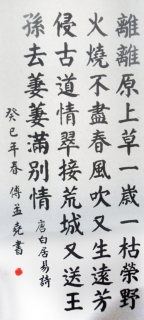 離離原上草一歲一枯榮野
火燒不盡春風吹又生遠芳
侵古道情翠接荒城又送王
孫去萋萋滿別情
唐白居易詩
癸巳年春傅孟堯書